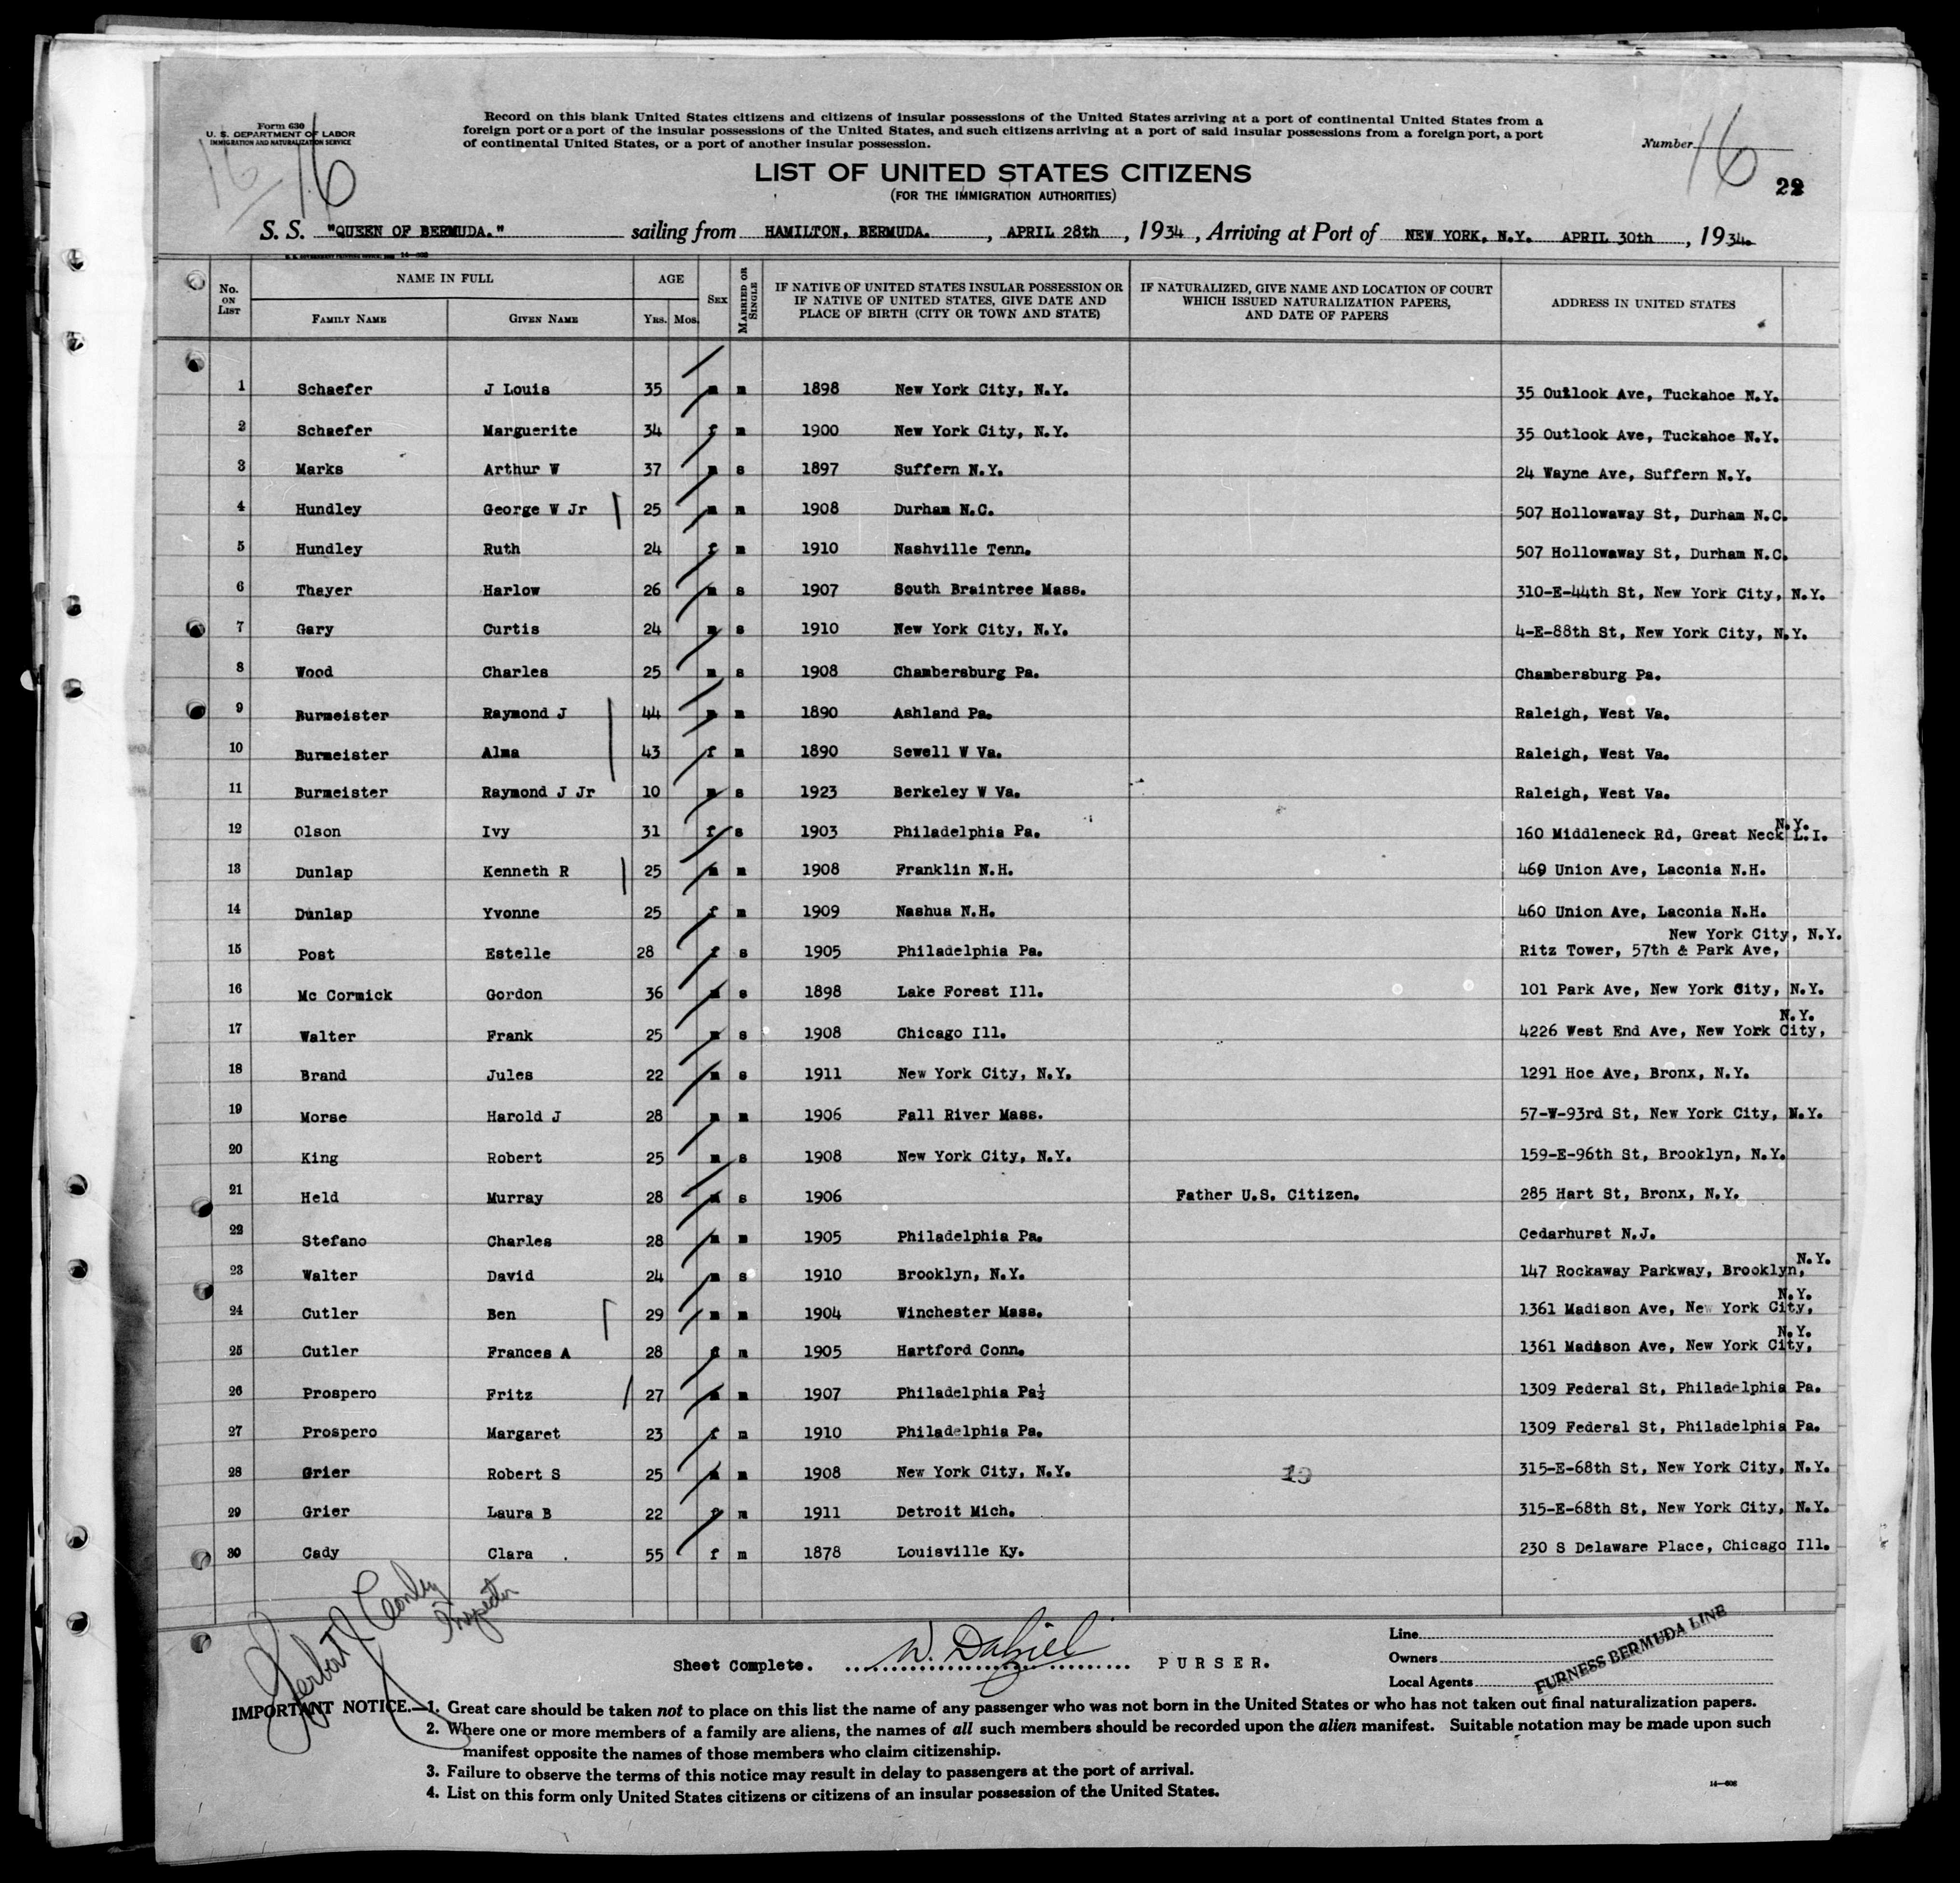 Form 630
U. S. DEPARTMENT OF LABOR
IMMIGRATION AND NATURALIZATION SERVICE
16
16
Record on this blank United States citizens and citizens of insular possessions of the United States arriving at a port of continental United States from a
foreign port or a port of the insular possessions of the United States, and such citizens arriving at a port of said insular possessions from a foreign port, a port
of continental United States, or a port of another insular possession.
Number 16
LIST OF UNITED STATES CITIZENS
(FOR THE IMMIGRATION AUTHORITIES)
S. S. "QUEEN OF BERMUDA." sailing from HAMILTON, BERMUDA. , APRIL 28th , 1934 , Arriving at Port of NEW YORK, N.Y. APRIL 30th , 1934.
No. ON LIST NAME IN FULL FAMILY NAME GIVEN NAME AGE YRS. MOS. SEX MARRIED OR SINGLE IF NATIVE OF UNITED STATES INSULAR POSSESSION OR IF NATIVE OF UNITED STATES, GIVE DATE AND PLACE OF BIRTH (CITY OR TOWN AND STATE) IF NATURALIZED, GIVE NAME AND LOCATION OF COURT WHICH ISSUED NATURALIZATION PAPERS, AND DATE OF PAPERS ADDRESS IN UNITED STATES
1 Schaefer J Louis 35 m m 1898 New York City, N.Y. 35 Outlook Ave, Tuckahoe N.Y.
2 Schaefer Marguerite 34 f m 1900 New York City, N.Y. 35 Outlook Ave, Tuckahoe N.Y.
3 Marks Arthur W 37 m s 1897 Suffern N.Y. 24 Wayne Ave, Suffern N.Y.
4 Hundley George W Jr 25 m m 1908 Durham N.C. 507 Hollowaway St, Durham N.C.
5 Hundley Ruth 24 f m 1910 Nashville Tenn. 507 Hollowaway St, Durham N.C.
6 Thayer Harlow 26 m s 1907 South Braintree Mass. 310-E-44th St, New York City, N.Y.
7 Gary Curtis 24 m s 1910 New York City, N.Y. 4-E-88th St, New York City, N.Y.
8 Wood Charles 25 m s 1908 Chambersburg Pa. Chambersburg Pa.
9 Burmeister Raymond J 44 m m 1890 Ashland Pa. Raleigh, West Va.
10 Burmeister Alma 43 f m 1890 Sewell W Va. Raleigh, West Va.
11 Burmeister Raymond J Jr 10 m s 1923 Berkeley W Va. Raleigh, West Va.
12 Olson Ivy 31 f s 1903 Philadelphia Pa. 160 Middleneck Rd, Great Neck L.I. N.Y.
13 Dunlap Kenneth R 25 m m 1908 Franklin N.H. 460 Union Ave, Laconia N.H.
14 Dunlap Yvonne 25 f m 1909 Nashua N.H. 460 Union Ave, Laconia N.H.
15 Post Estelle 28 f s 1905 Philadelphia Pa. Ritz Tower, 57th & Park Ave, New York City, N.Y.
16 Mc Cormick Gordon 36 m s 1898 Lake Forest Ill. 101 Park Ave, New York City, N.Y.
17 Walter Frank 25 m s 1908 Chicago Ill. 4226 West End Ave, New York City, N.Y.
18 Brand Jules 22 m s 1911 New York City, N.Y. 1291 Hoe Ave, Bronx, N.Y.
19 Morse Harold J 28 m m 1906 Fall River Mass. 57-W-93rd St, New York City, N.Y.
20 King Robert 25 m s 1908 New York City, N.Y. 159-E-96th St, Brooklyn, N.Y.
21 Held Murray 28 m s 1906 Father U.S. Citizen. 285 Hart St, Bronx, N.Y.
22 Stefano Charles 28 m m 1905 Philadelphia Pa. Cedarhurst N.J.
23 Walter David 24 m s 1910 Brooklyn, N.Y. 147 Rockaway Parkway, Brooklyn, N.Y.
24 Cutler Ben 29 m m 1904 Winchester Mass. 1361 Madison Ave, New York City, N.Y.
25 Cutler Frances A 28 f m 1905 Hartford Conn. 1361 Madison Ave, New York City, N.Y.
26 Prospero Fritz 27 m m 1907 Philadelphia Pa½ 1309 Federal St, Philadelphia Pa.
27 Prospero Margaret 23 f m 1910 Philadelphia Pa. 1309 Federal St, Philadelphia Pa.
28 Grier Robert S 25 m m 1908 New York City, N.Y. 315-E-68th St, New York City, N.Y.
29 Grier Laura B 22 f m 1911 Detroit Mich. 315-E-68th St, New York City, N.Y.
30 Cady Clara 55 f m 1878 Louisville Ky. 230 S Delaware Place, Chicago Ill.
Inspector
Sheet Complete. PURSER.
Line
Owners
Local Agents
FURNESS BERMUDA LINE
IMPORTANT NOTICE.—1. Great care should be taken not to place on this list the name of any passenger who was not born in the United States or who has not taken out final naturalization papers.
2. Where one or more members of a family are aliens, the names of all such members should be recorded upon the alien manifest. Suitable notation may be made upon such
manifest opposite the names of those members who claim citizenship.
3. Failure to observe the terms of this notice may result in delay to passengers at the port of arrival.
4. List on this form only United States citizens or citizens of an insular possession of the United States.
14—608